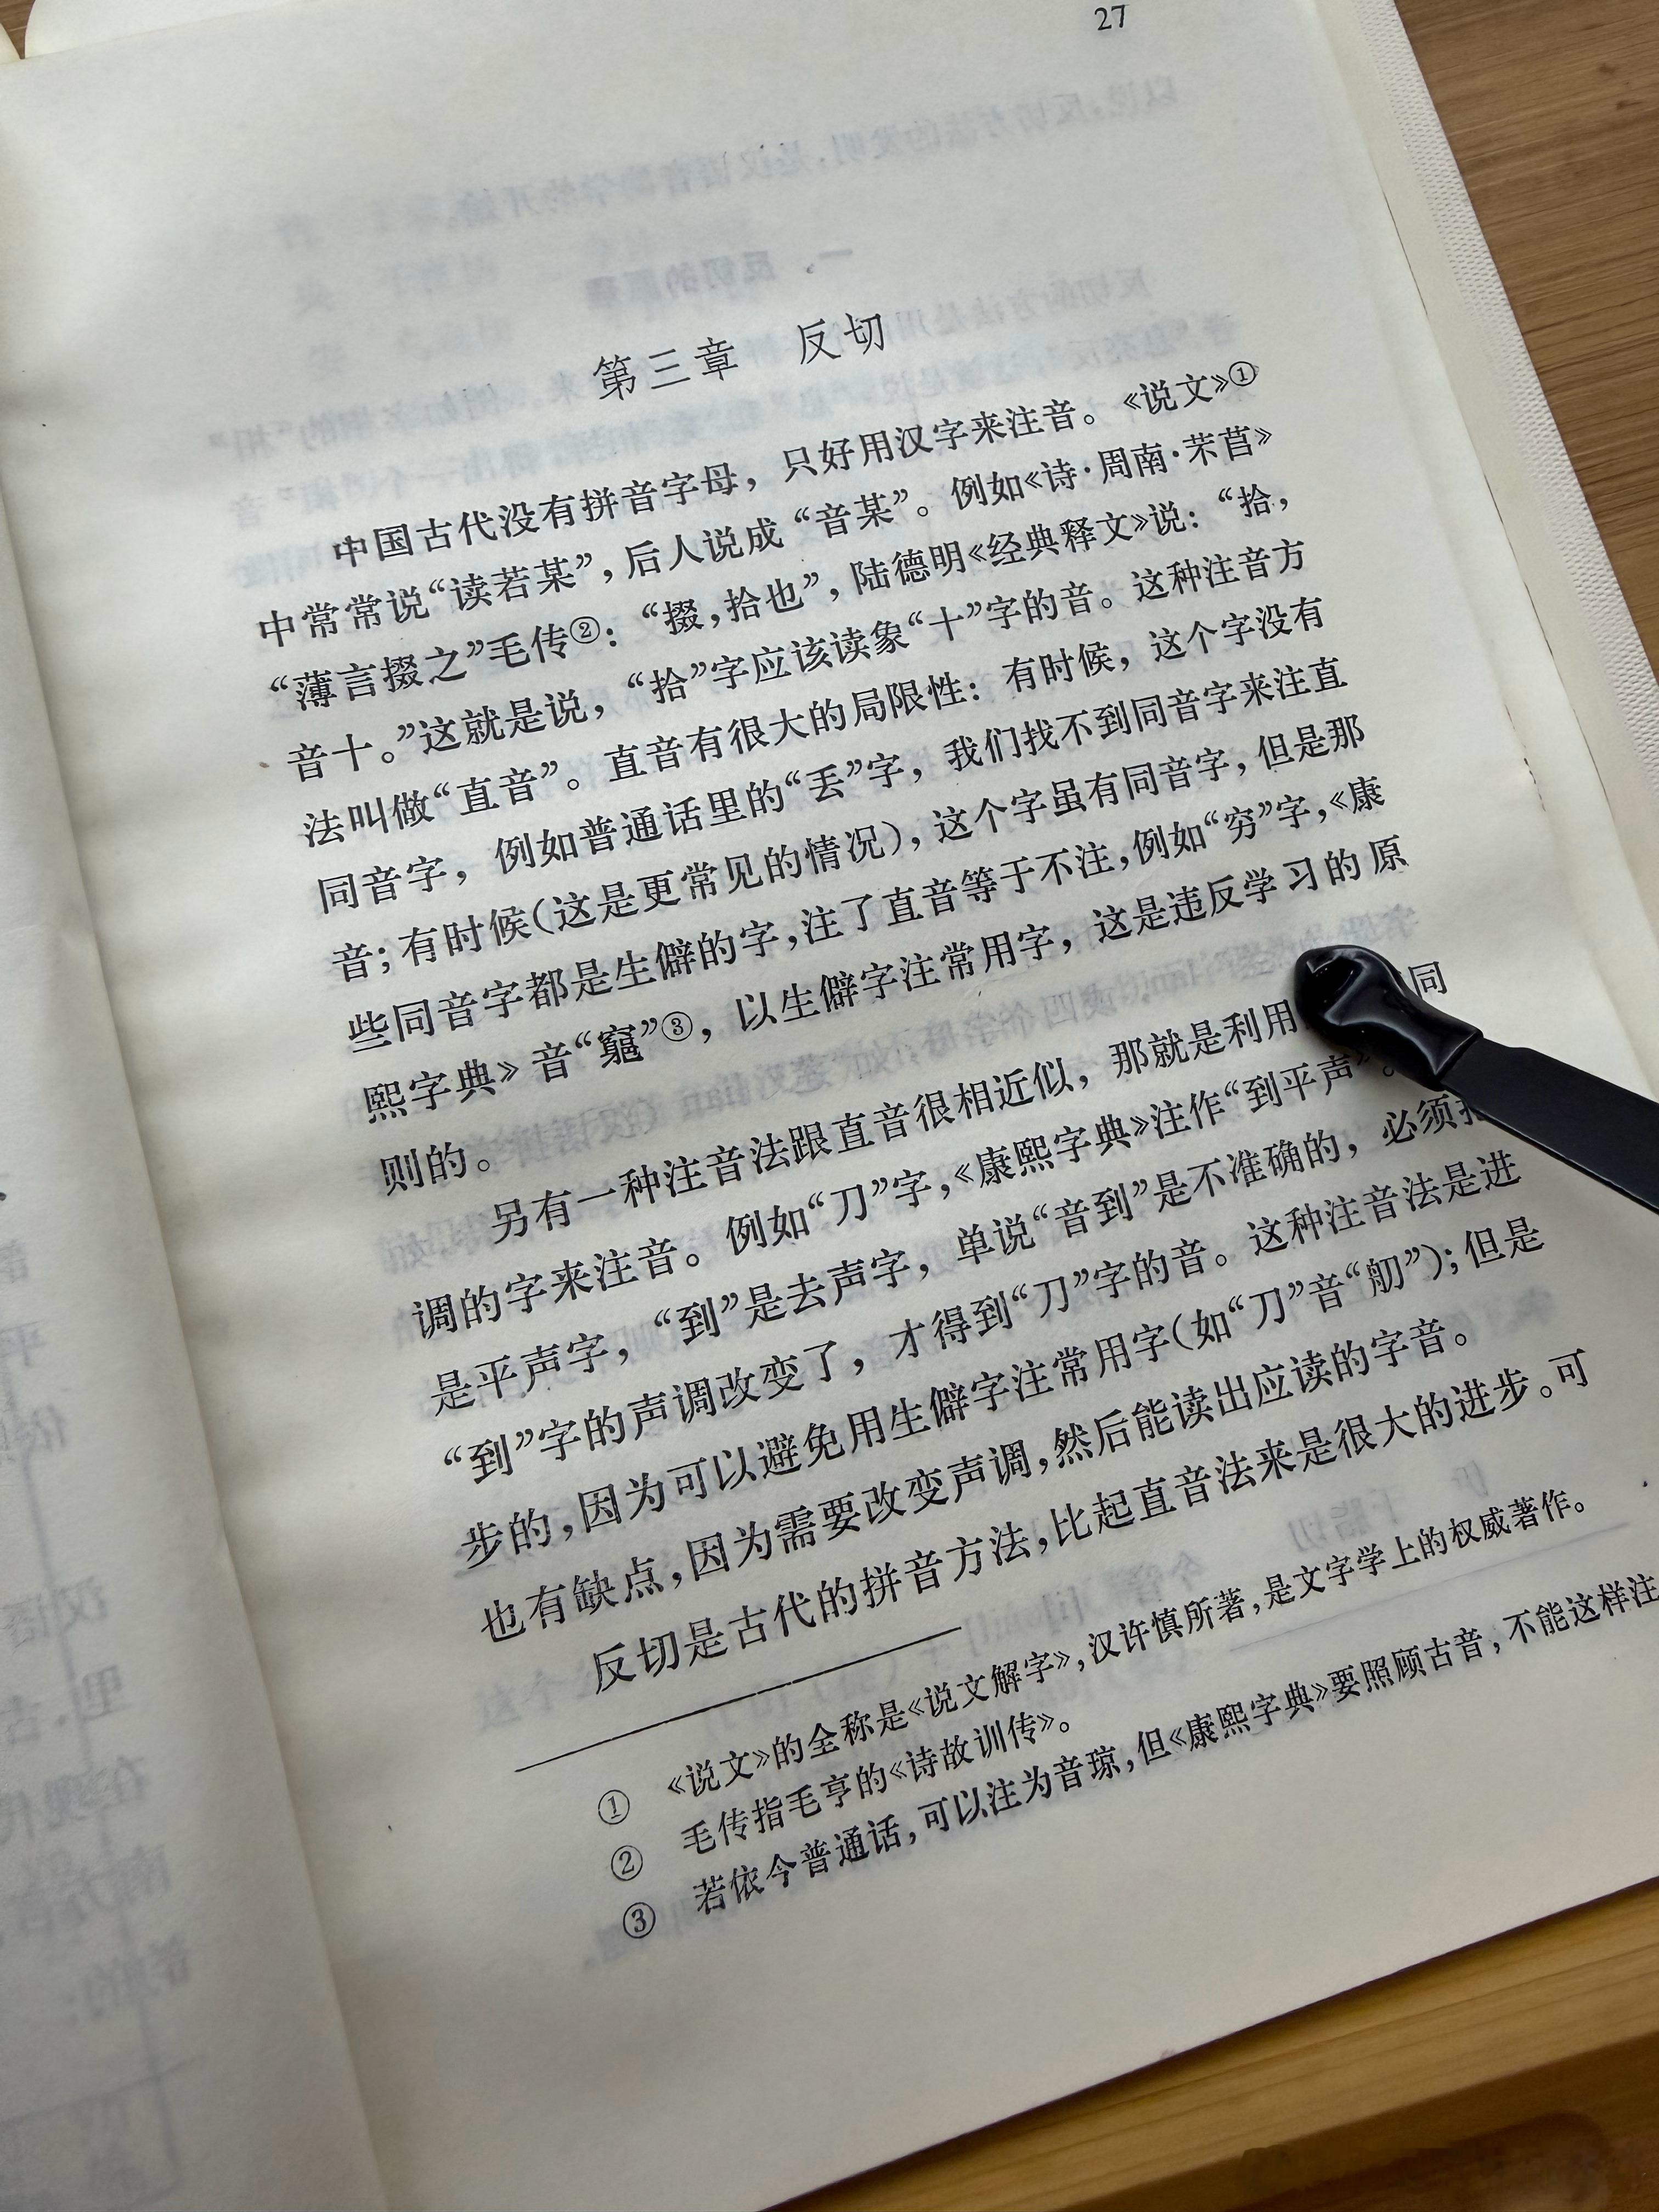 27
第三章 反切
中国古代没有拼音字母，只好用汉字来注音。《说文》①
中常常说“读若某”，后人说成“音某”。例如《诗·周南·芣苢》
“薄言掇之”毛传②：“掇，拾也”，陆德明《经典释文》说：“拾，
音十。”这就是说，“拾”字应该读象“十”字的音。这种注音方
法叫做“直音”。直音有很大的局限性：有时候，这个字没有
同音字，例如普通话里的“丢”字，我们找不到同音字来注直
音；有时候（这是更常见的情况），这个字虽有同音字，但是那
些同音字都是生僻的字，注了直音等于不注，例如“穷”字，《康
熙字典》音“窮”③，以生僻字注常用字，这是违反学习的原
则的。
另有一种注音法跟直音很相近似，那就是利用 同
调的字来注音。例如“刀”字，《康熙字典》注作“到平声”。
是平声字，“到”是去声字，单说“音到”是不准确的，必须
“到”字的声调改变了，才得到“刀”字的音。这种注音法是进
步的，因为可以避免用生僻字注常用字（如“刀”音“舠”）；但是
也有缺点，因为需要改变声调，然后能读出应读的字音。
反切是古代的拼音方法，比起直音法来是很大的进步。可
① 《说文》的全称是《说文解字》，汉许慎所著，是文字学上的权威著作。
② 毛传指毛亨的《诗故训传》。
③ 若依今普通话，可以注为音琼，但《康熙字典》要照顾古音，不能这样注